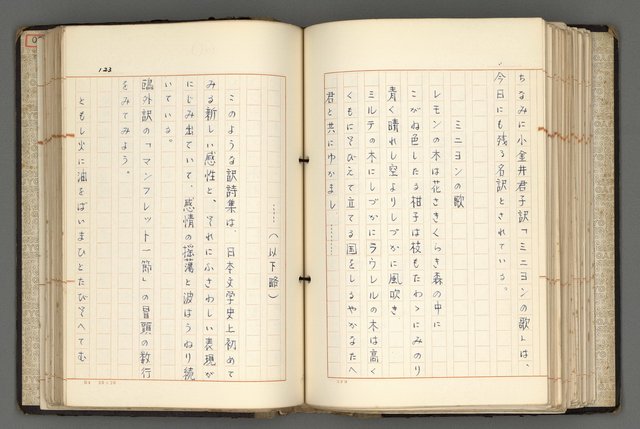 ちなみに小金井君子訳「ミニヨンの歌」は、
今日にも残る名訳とされている。
ミニヨンの歌
レモンの木は花さきくらき森の中に
こがね色したる柑子は枝もたわゝにみのり
青く晴れし空よりしづかに風吹き
ミルテの木にしづかにラウレルの木は高く
くもにそびえて立てる国をしるやかなたへ
君と共にゆかまし
……（以下略）
このような訳詩集は、日本文学史上初めて
みる新しい感性と、それにふさわしい表現が
にじみ出ていて、感情の揺蕩と波はうねり続
いている。
鴎外訳の「マンフレット一節」の冒頭の数行
をみてみよう。
ともし火に油をばいまひとたびそへてむ
123